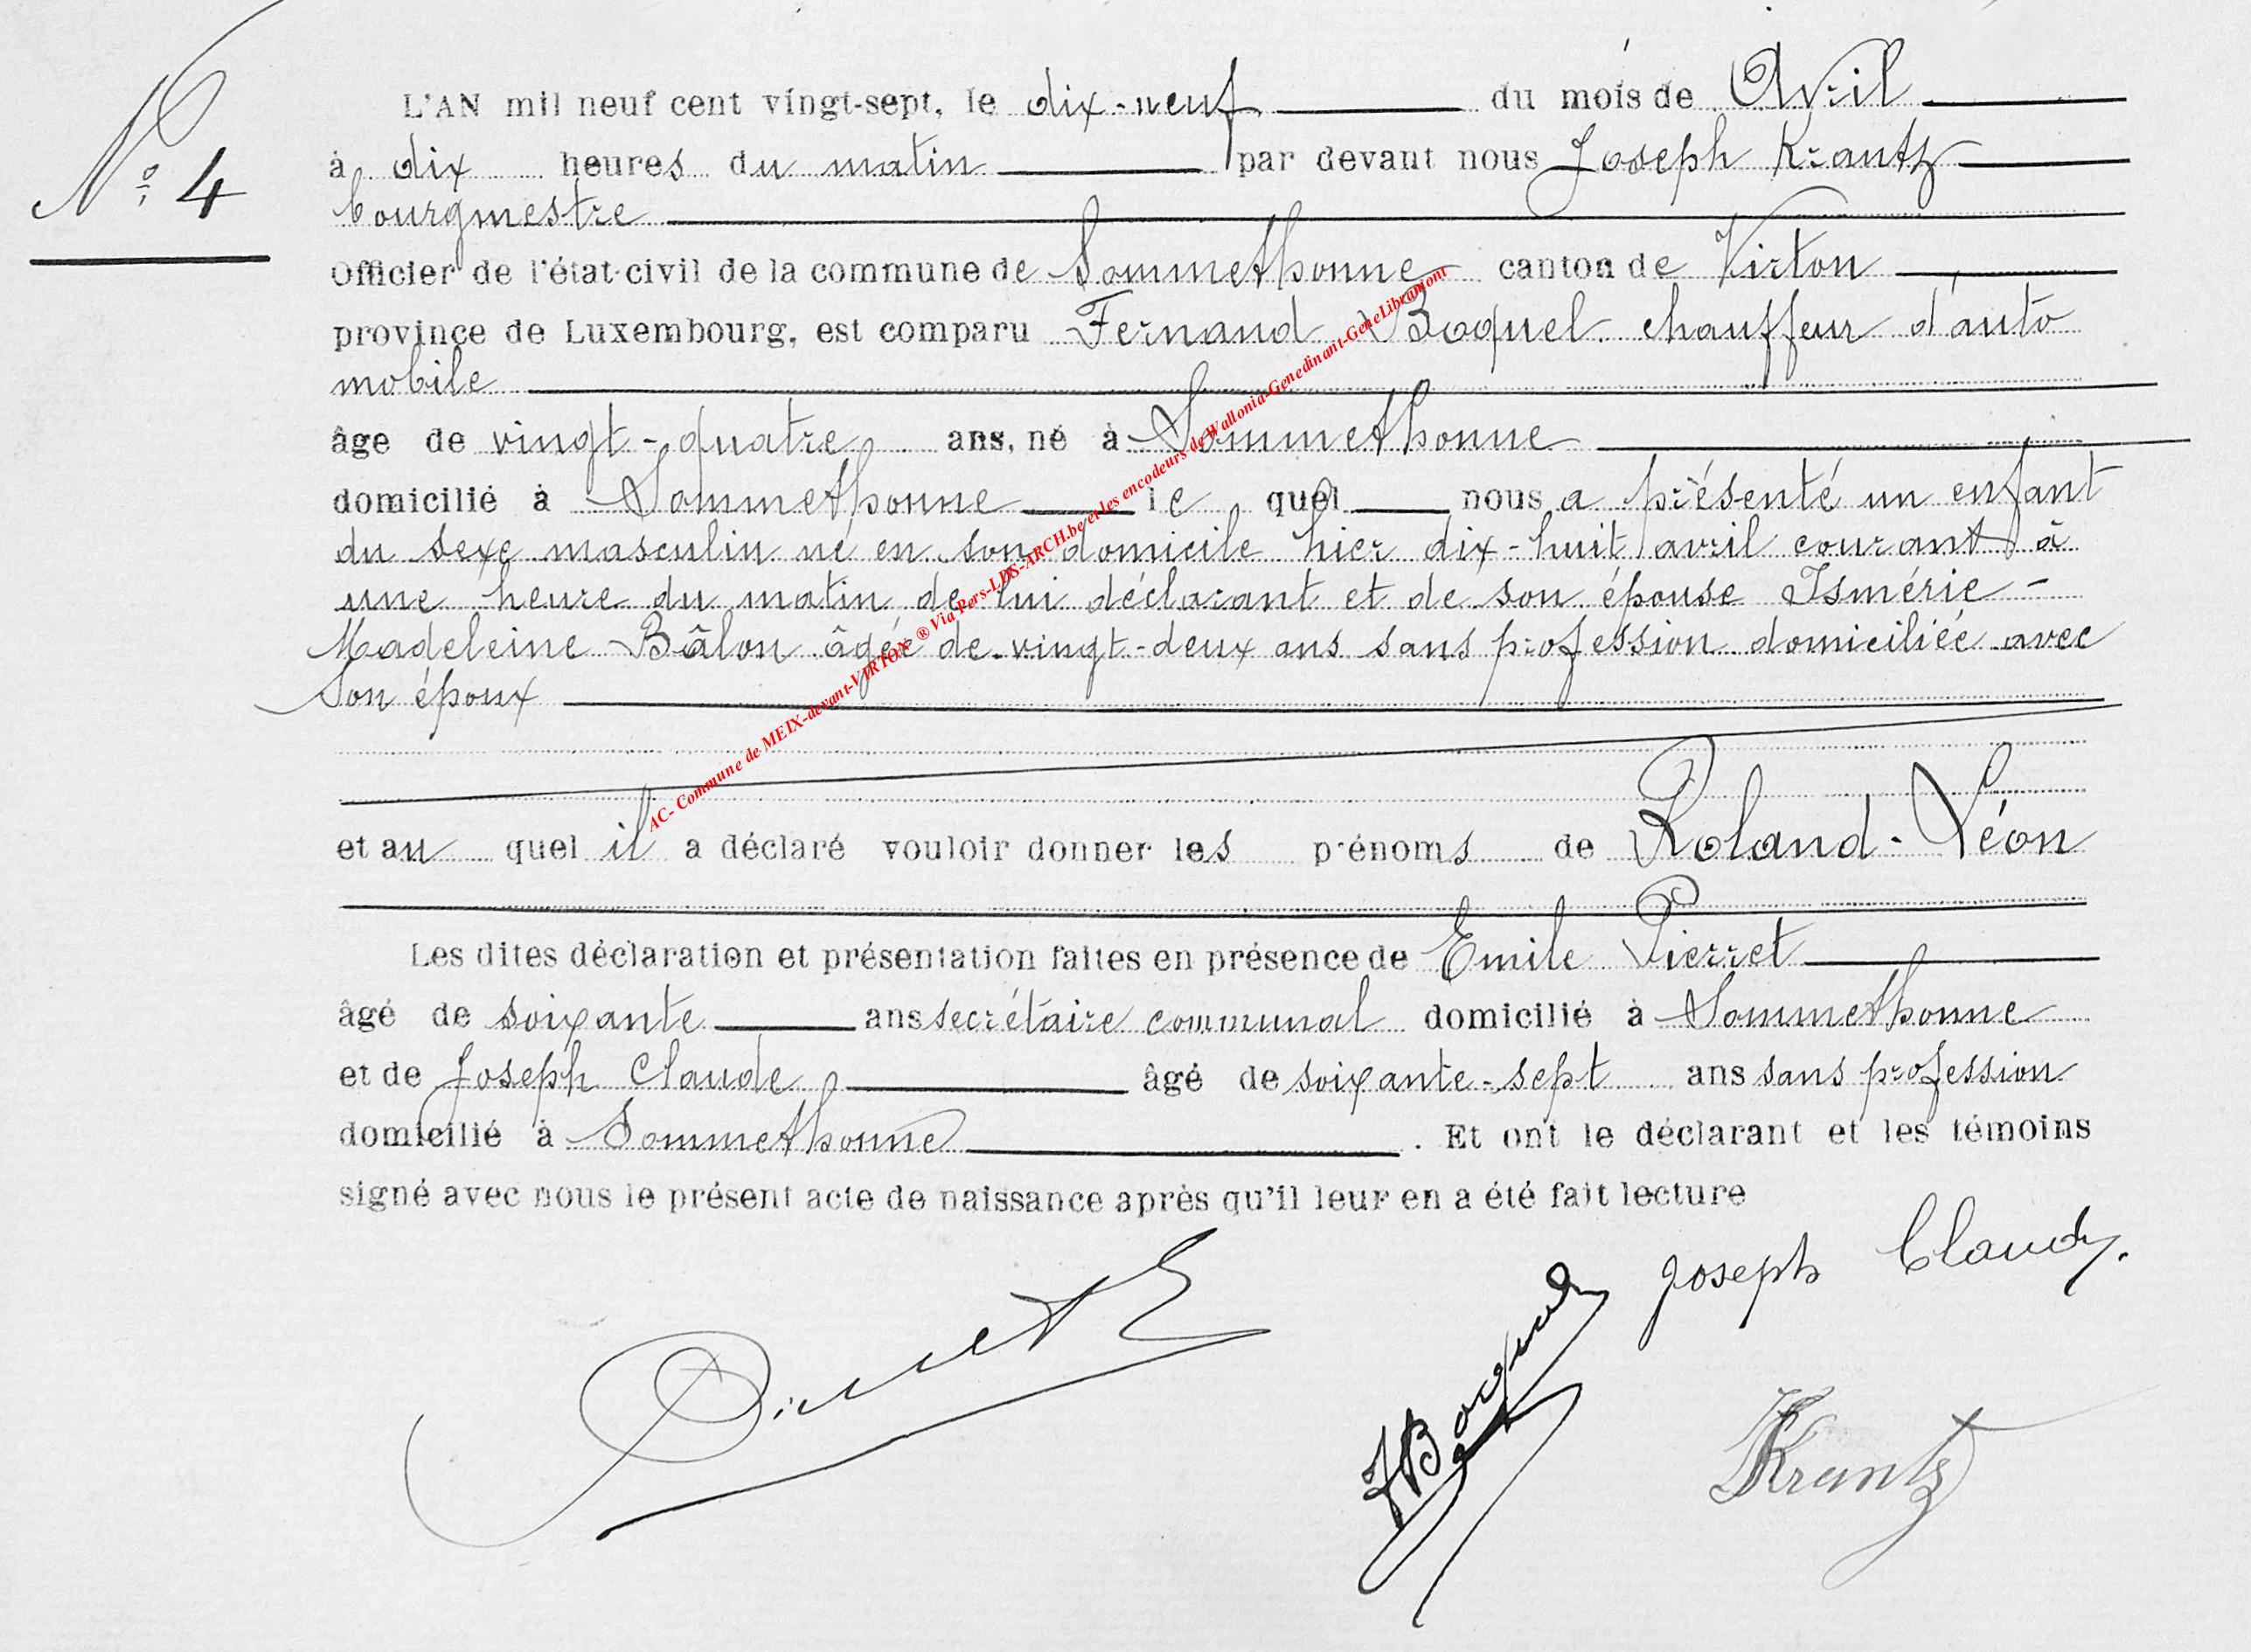 N° 4
L'AN mil neuf cent vingt-sept, le dix-neuf du mois de Avril
à dix heures du matin par devant nous Joseph Krantz
bourgmestre
Officier de l'état-civil de la commune de Sommethonne canton de Virton
province de Luxembourg, est comparu Fernand Boquel chauffeur d'auto
mobile
âge de vingt-quatre ans, né à Sommethonne
domicilié à Sommethonne le quel nous a présenté un enfant
du sexe masculin né en son domicile hier dix-huit avril courant à
une heure du matin de lui déclarant et de son épouse Ismérie-
Madeleine Bâlon âgée de vingt-deux ans sans profession domiciliée avec
son époux
et au quel il a déclaré vouloir donner les prénoms de Roland-Léon
Les dites déclaration et présentation faites en présence de Emile Pierret
âgé de soixante ans secrétaire communal domicilié à Sommethonne
et de Joseph Claude âgé de soixante-sept ans sans profession
domicilié à Sommethonne. Et ont le déclarant et les témoins
signé avec nous le présent acte de naissance après qu'il leur en a été fait lecture
Joseph Claude.
Krantz
AC- Commune de MEIX-devant-VIRTON ® Via Pers-LDS-ARCH.be et les encodeurs de Wallonia-Genedinant-GeneLibramont